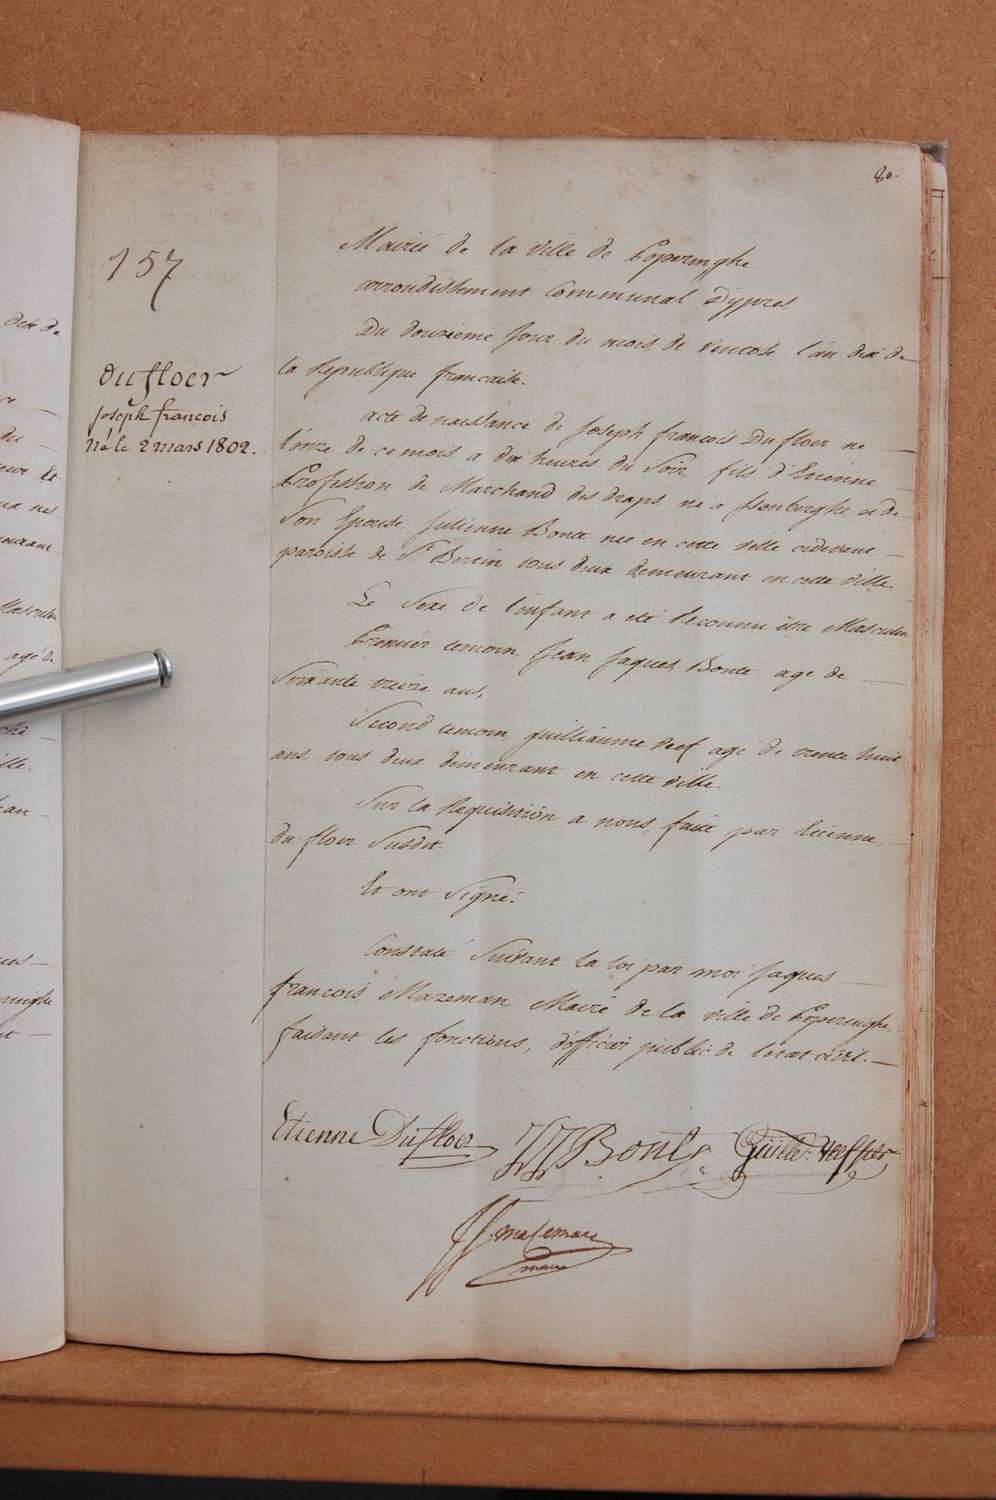 80.
157
dufloer
joseph francois
né le 2 mars 1802.
Mairie de la ville de Poperinghe
arrondissement Communal d'ypres
Du douzieme jour du mois de Ventose l'an dix de
la Republique francaise.
acte de naissance de joseph francois Du floer ne
l'onze de ce mois a dix heures du Soir, fils d'Etienne
Profession de Marchand des draps ne a jsenberghe et de
Son Epouse julienne Bonte neé en cette ville cidevant
paroisse de St Bertin tous deux demeurant en cette ville.
Le Sexe de l'enfant a eté Reconnu être Masculin
Premier temoin jean jaques Bonte agé de
Soixante treize ans,
Second temoin guilliaume neef agé de trente huit
ans tous deux demeurant en cette ville.
Sur la Requisition a nous faite par Etienne
du floer Susdit.
Et ont Signé.
Constaté Suivant la loi par moi jaques
francois Mazeman Maire de la ville de Poperinghe
faisant les fonctions, d'officier public de l'etat civil.
Etienne Dufloer
Bonte
J. f. mazeman
maire
dix de
agé de
ville.